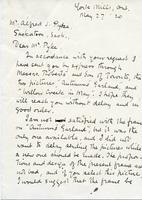 York Mills, Ont.
May 27 '30
Mr. Alfred J. Pyke
Saskatoon, Sask.
Dear Mr. Pyke
In accordance with your request I
have sent you on express through
Messrs Roberts and Son of Toronto, the
two pictures "Autumn's Garland", and
"Willow Creek in May". I hope they
will reach you without delay and in
good order.
I am not satisfied with the frame
on "Autumn's Garland", but it was the
only one available, and I did not
want to delay sending the pictures while
a new one should be made. The proportions
and design of the present frame are
not bad, and if you select this picture
I would suggest that the frame be